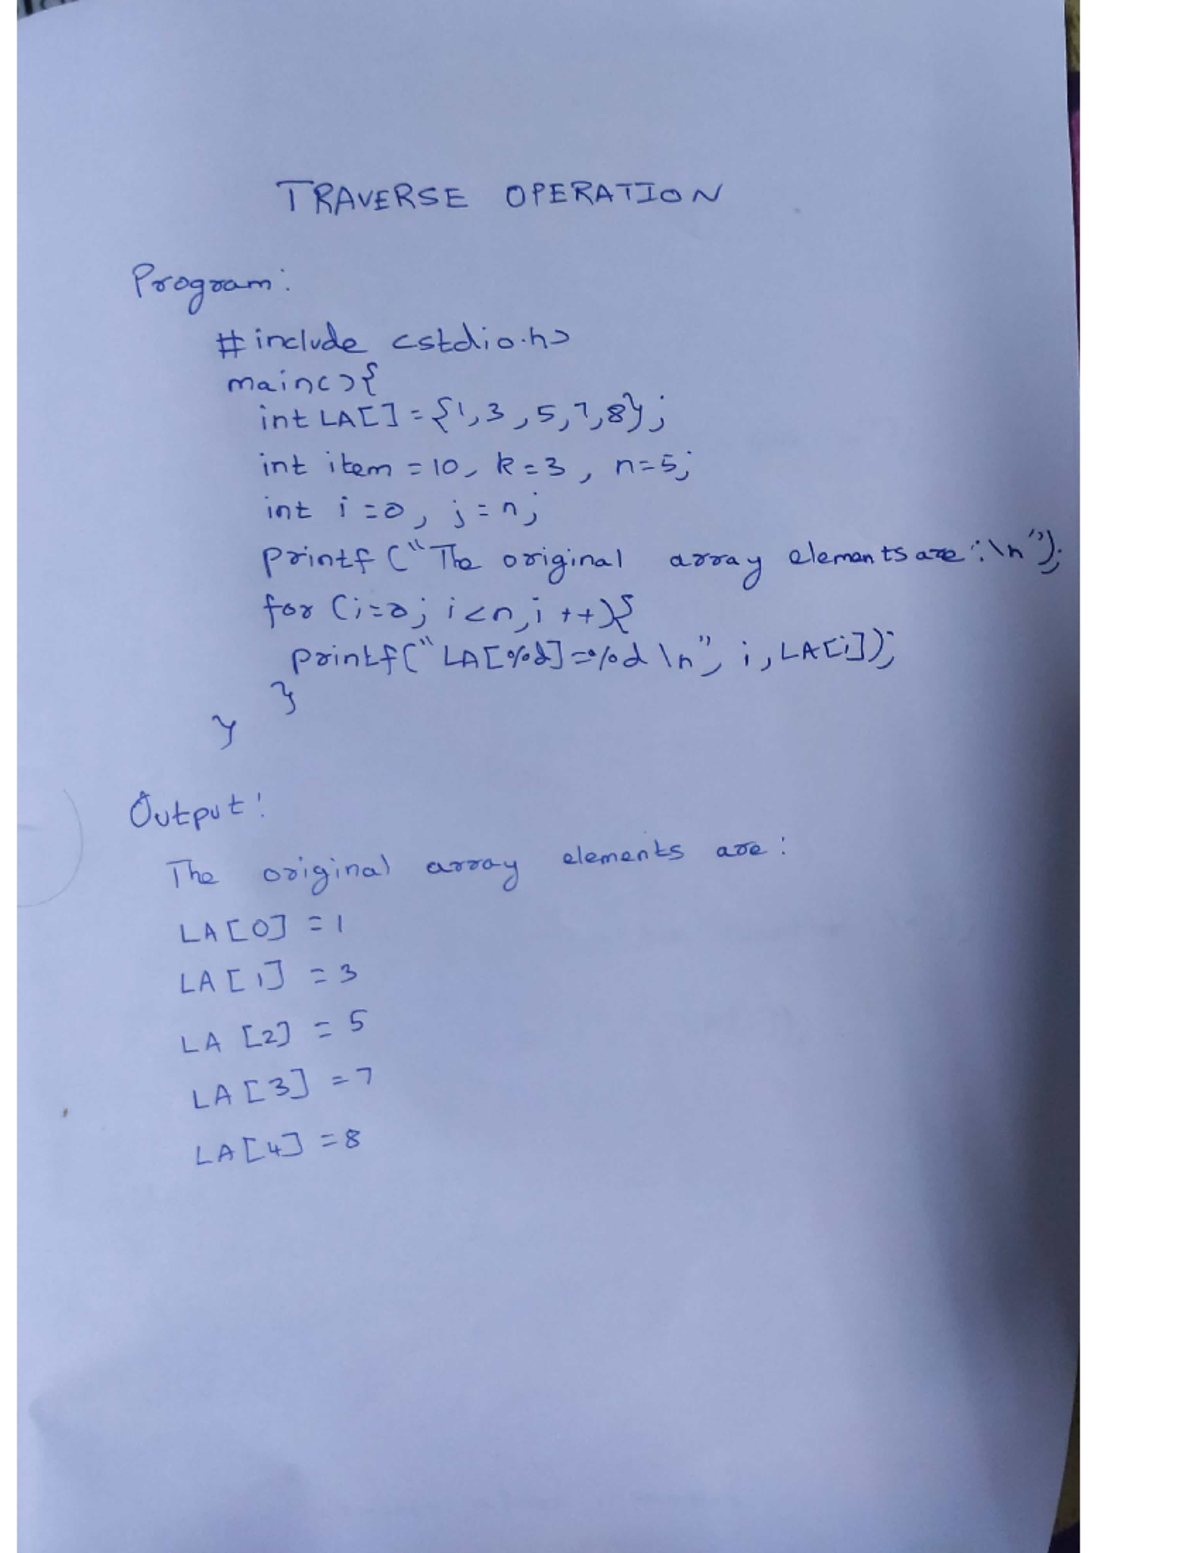 TRAVERSE OPERATION
Program:
#include <stdio.h>
main(){
int LA[]={1,3,5,7,8};
int item=10, k=3, n=5;
int i=0, j=n;
printf("The original array elements are:\n");
for(i=0; i<n,i++){
printf("LA[%d]=%d\n", i,LA[i]);
}
}
Output:
The original array elements are:
LA[0] =1
LA[1] =3
LA [2] =5
LA[3] =7
LA[4] =8